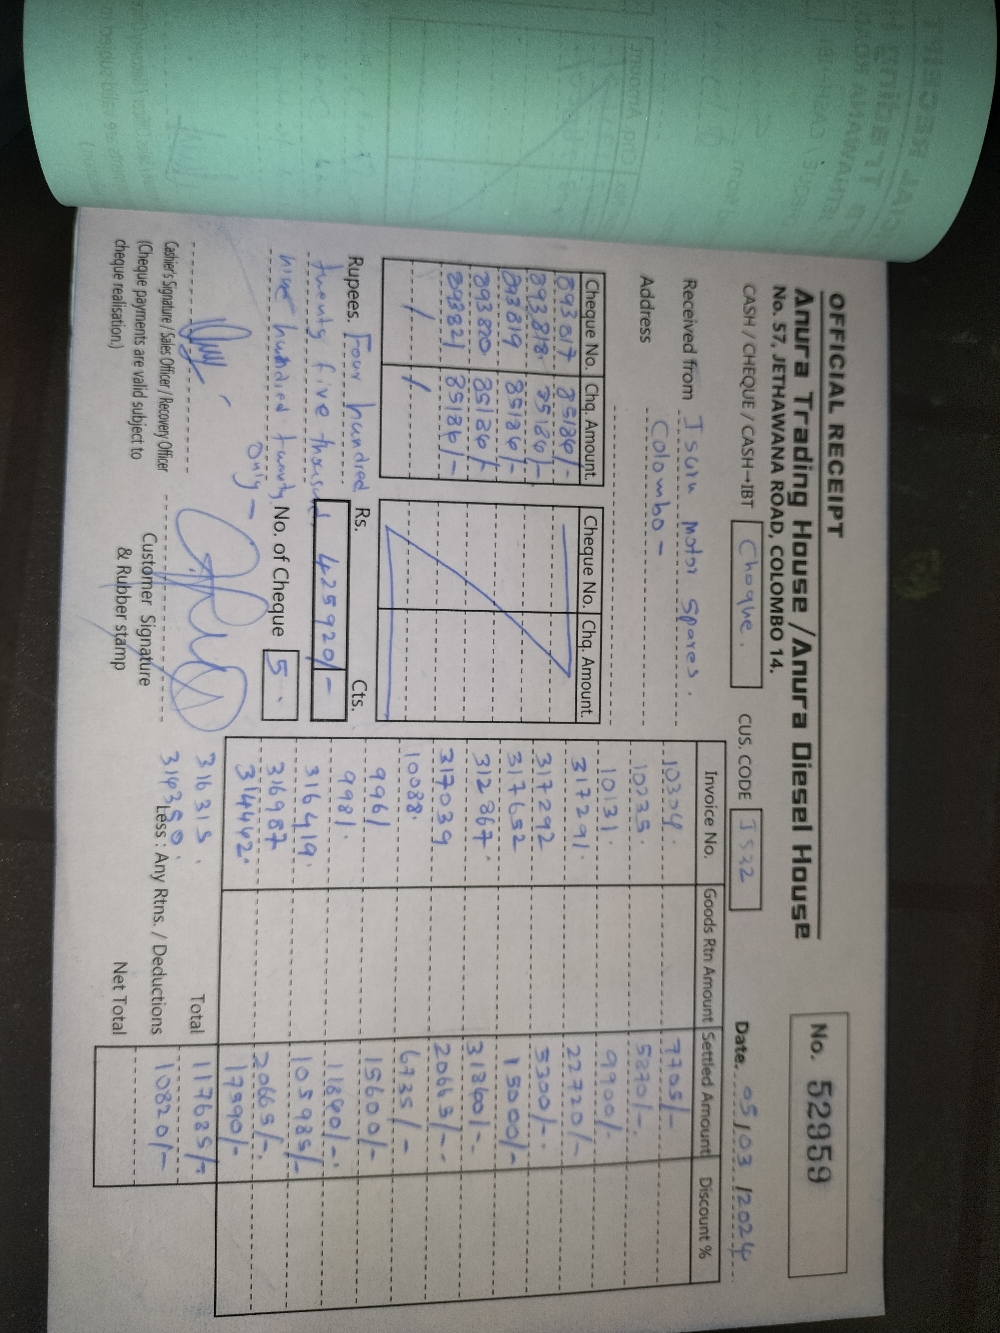 OFFICIAL RECEIPT
Anura Trading House /Anura Diesel House
No. 57, JETHAWANA ROAD, COLOMBO 14.
No. 52959
CASH / CHEQUE / CASH→IBT Cheque. CUS. CODE JS32 Date. 05/03/2024
Received from Isuru Motor Spares.
Address Colombo -
Cheque No. Chq. Amount.
893817 85184/-
893818 85184/-
893819 85184/-
893820 85184/-
893821 85184/-
Cheque No. Chq. Amount.
Rupees. Four hundred
twenty five thousand
nine hundred twenty
Only -
Rs. Cts.
425920/-
No. of Cheque 5
Cashier's Signature / Sales Officer / Recovery Officer
(Cheque payments are valid subject to
cheque realisation.)
Customer Signature
& Rubber stamp
Invoice No. Goods Rtn Amount Settled Amount Discount %
10304. 7705/-
10235. 5870/-
10131. 9900/-
317291. 22720/-
317292 5300/-
317652 15000/-
312867. 31860/-
317039 20665/-
10088. 6735/-
9961 15600/-
9981. 11840/-
316419. 105985/-
316987 20665/-
314442. 17590/-
316315. Total 117685/-
314350. Less : Any Rtns. / Deductions 10820/-
Net Total